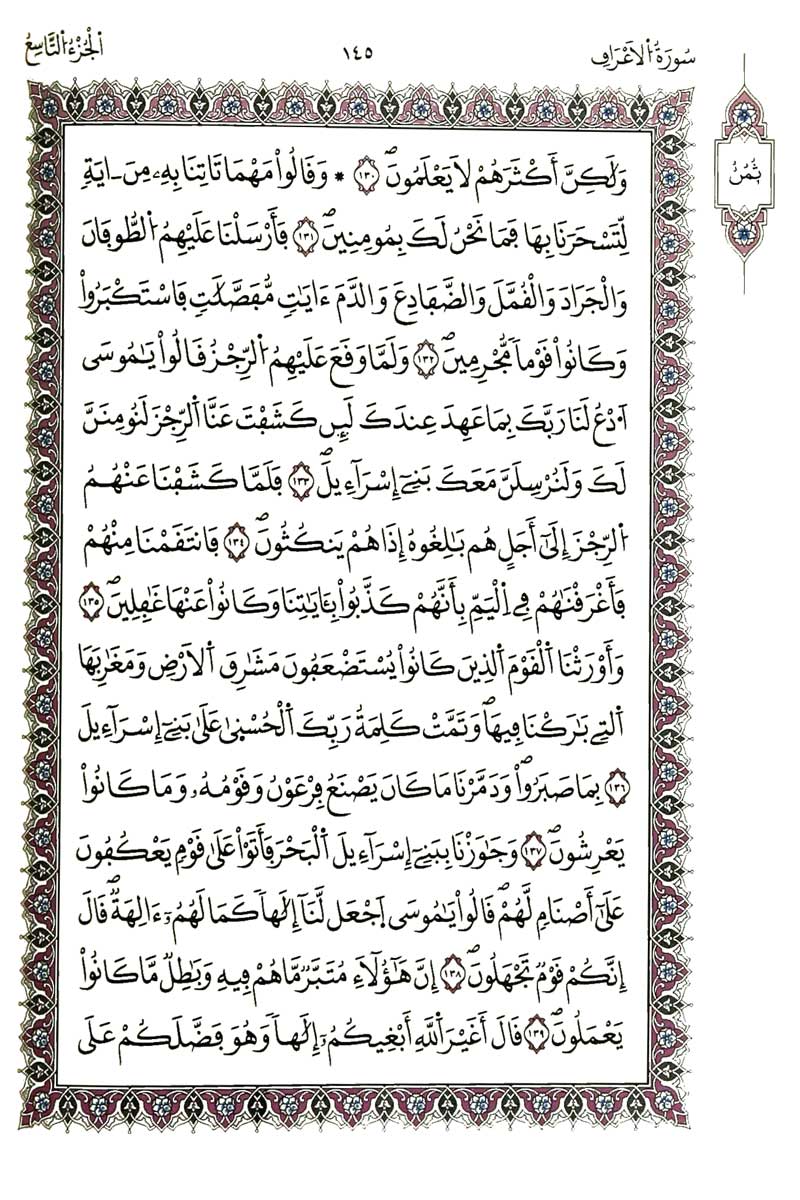 سُورَةُ اُ۬لَاعْرَافِ
١٤٥
اَ۬لْجُزْءُ اُ۬لتَّاسِعُ
ثُمُنُ
وَلَٰكِنَّ أَكْثَرَهُمْ لَا يَعْلَمُونَۖ ١٣٠ * وَقَالُواْ مَهْمَا تَاتِنَا بِهِۦ مِنَ ـ ايَةٖ
لِّتَسْحَرَنَا بِهَا فَمَا نَحْنُ لَكَ بِمُومِنِينَۖ ١٣١ فَأَرْسَلْنَا عَلَيْهِمُ اُ۬لطُّوفَانَ
وَالْجَرَادَ وَالْقُمَّلَ وَالضَّفَادِعَ وَالدَّمَ ءَايَٰتٖ مُّفَصَّلَٰتٖ فَاسْتَكْبَرُواْ
وَكَانُواْ قَوْماٗ مُّجْرِمِينَۖ ١٣٢ وَلَمَّا وَقَعَ عَلَيْهِمُ اُ۬لرِّجْزُ قَالُواْ يَٰمُوسَى
اَ۟دْعُ لَنَا رَبَّكَ بِمَا عَهِدَ عِندَكَ لَئِن كَشَفْتَ عَنَّا اَ۬لرِّجْزَ لَنُومِنَنَّ
لَكَ وَلَنُرْسِلَنَّ مَعَكَ بَنِےٓ إِسْرَآءِيلَۖ ١٣٣ فَلَمَّا كَشَفْنَا عَنْهُمُ
اُ۬لرِّجْزَ إِلَىٰٓ أَجَلٍ هُم بَٰلِغُوهُ إِذَا هُمْ يَنكُثُونَۖ ١٣٤ فَانتَقَمْنَا مِنْهُمْ
فَأَغْرَقْنَٰهُمْ فِے اِ۬لْيَمِّ بِأَنَّهُمْ كَذَّبُواْ بِـَٔايَٰتِنَا وَكَانُواْ عَنْهَا غَٰفِلِينَۖ ١٣٥
وَأَوْرَثْنَا اَ۬لْقَوْمَ اَ۬لذِينَ كَانُواْ يُسْتَضْعَفُونَ مَشَٰرِقَ اَ۬لَارْضِ وَمَغَٰرِبَهَا
اَ۬لتِے بَٰرَكْنَا فِيهَاۖ وَتَمَّتْ كَلِمَةُ رَبِّكَ اَ۬لْحُسْنَىٰ عَلَىٰ بَنِےٓ إِسْرَآءِيلَ
١٣٦ بِمَا صَبَرُواْۖ وَدَمَّرْنَا مَا كَانَ يَصْنَعُ فِرْعَوْنُ وَقَوْمُهُۥ وَمَا كَانُواْ
يَعْرِشُونَۖ ١٣٧ وَجَٰوَزْنَا بِبَنِےٓ إِسْرَآءِيلَ اَ۬لْبَحْرَ فَأَتَوْاْ عَلَىٰ قَوْمٖ يَعْكُفُونَ
عَلَىٰٓ أَصْنَامٖ لَّهُمْۖ قَالُواْ يَٰمُوسَى اَ۪جْعَل لَّنَآ إِلَٰهاٗ كَمَا لَهُمُۥٓ ءَالِهَةٞۖ قَالَ
إِنَّكُمْ قَوْمٞ تَجْهَلُونَۖ ١٣٨ إِنَّ هَٰٓؤُلَآءِ مُتَبَّرٞ مَّا هُمْ فِيهِ وَبَٰطِلٞ مَّا كَانُواْ
يَعْمَلُونَۖ ١٣٩ قَالَ أَغَيْرَ اَ۬للَّهِ أَبْغِيكُمُۥٓ إِلَٰهاٗ وَهُوَ فَضَّلَكُمْ عَلَى